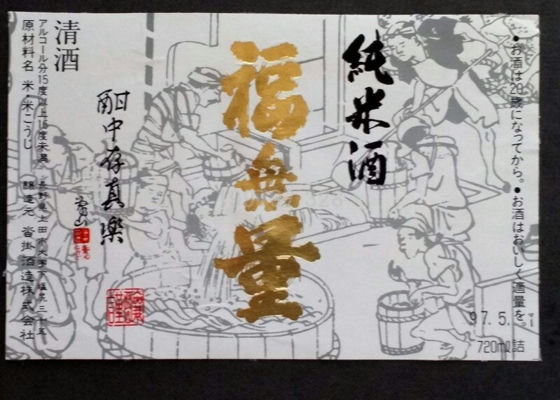 ●お酒は20歳になってから。●お酒はおいしく適量を。
97.5.
720ml詰
純米酒
福無量
酎中存真樂
清酒
アルコール分15度以上16度未満
原材料名 米・米こうじ
醸造元 沓掛酒造株式会社